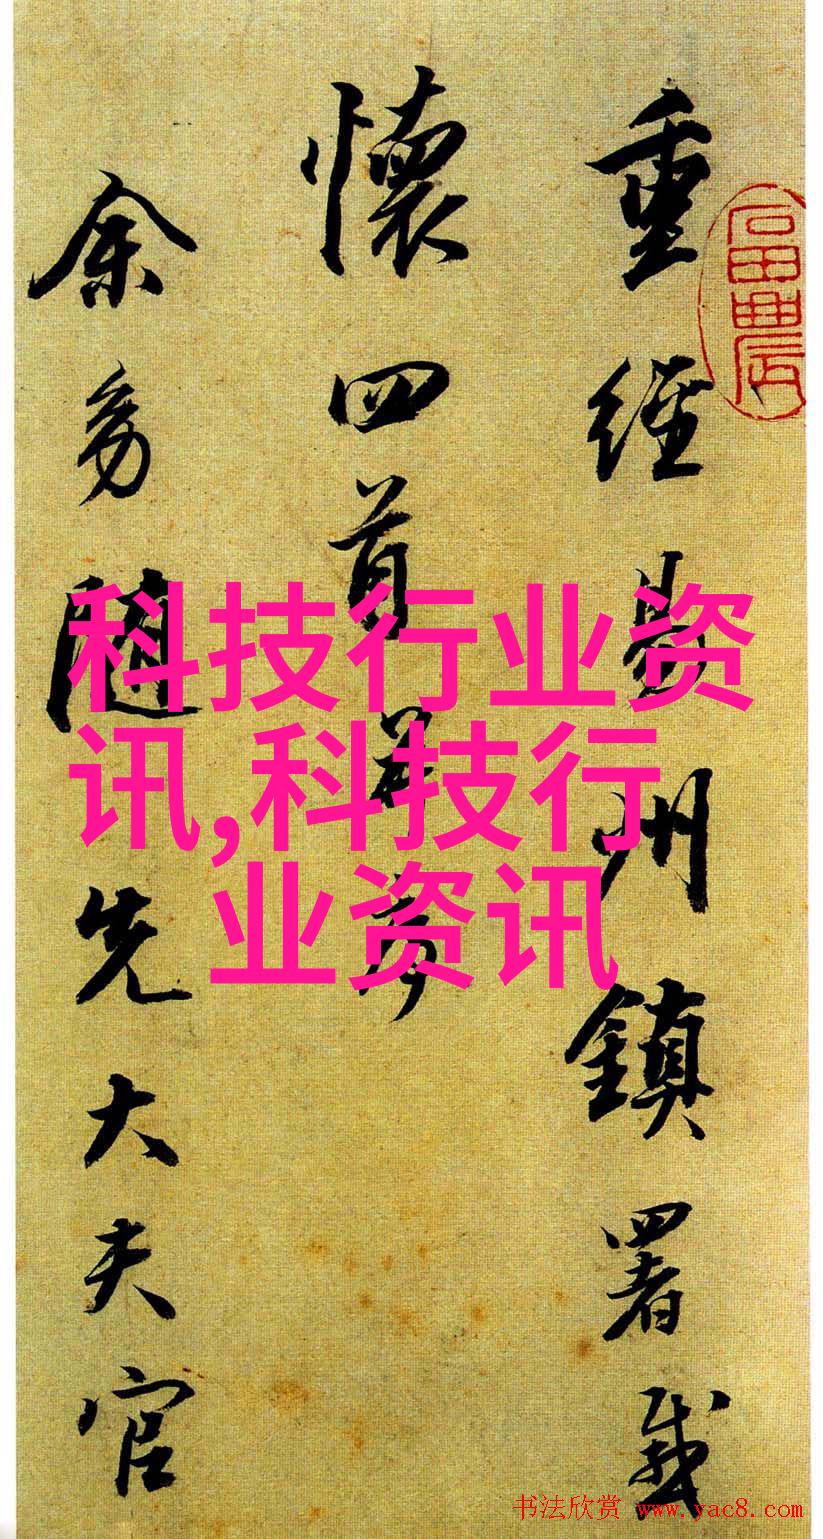 重經易州鎮署感
懷四首并序
余幼隨先大夫官
科技行业资
讯,科技行
业资讯
书法欣赏 www.yac8.com